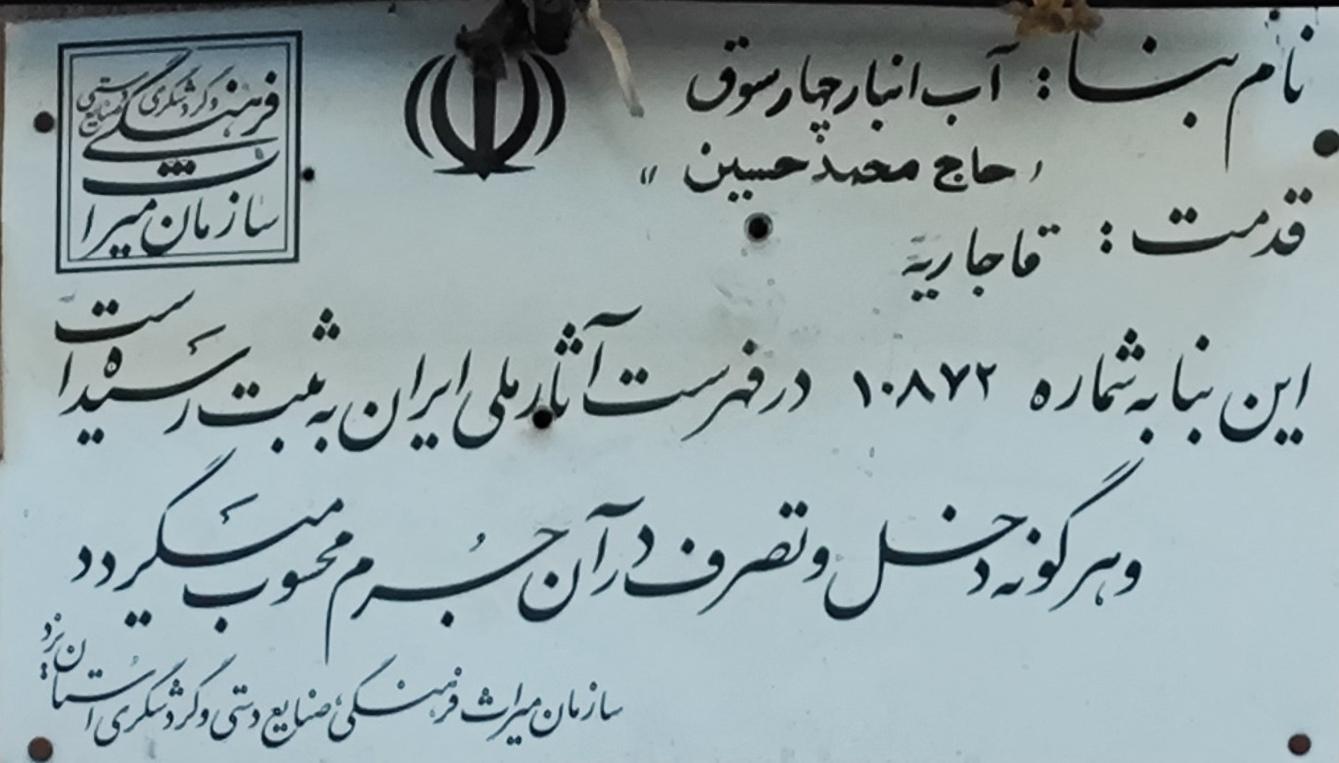 نام بنا : آب انبار چهار سوق
« حاج محمد حسین »
قدمت : قاجاریه
این بنا به شماره ۱۰۸۷۲ در فهرست آثار ملی ایران به ثبت رسیده است
و هرگونه دخل و تصرف در آن جرم محسوب میگردد
سازمان میراث فرهنگی، صنایع دستی و گردشگری استان یزد
سازمان میراث
فرهنگی
صنایع دستی و گردشگری